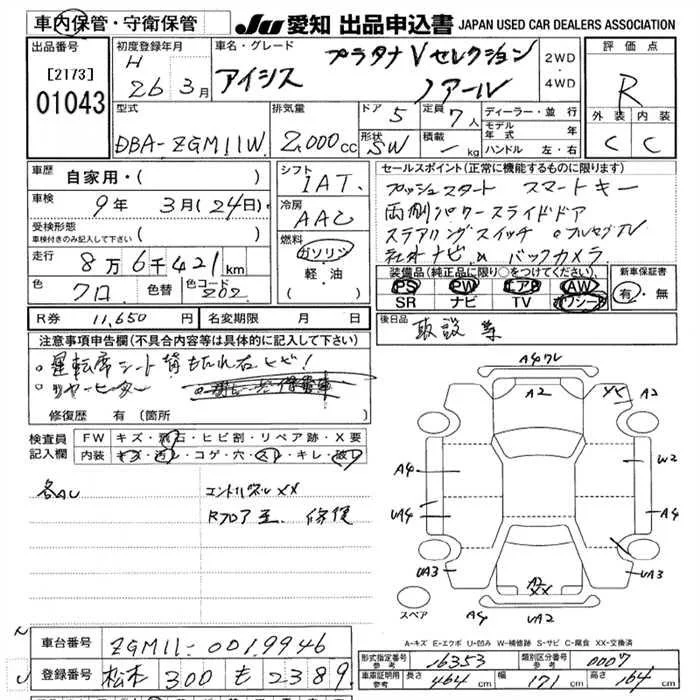 車内保管・守衛保管
JU 愛知 出品申込書 JAPAN USED CAR DEALERS ASSOCIATION
出品番号
[2173]
01043
初度登録年月
H
26 3月
車名・グレード
アイシス
プラタナ Vセレクション
ノアール
2WD
・
4WD
評価点
R
外装 内装
C C
型式
DBA-ZGM11W
排気量
2,000cc
ドア 5
定員 7人
形状 SW
積載 - kg
ディーラー・並行
モデル年式 年
ハンドル 左・右
車歴
自家用・( )
車検
9年 3月(24日)
受検形態
車検付きのみ記入して下さい ( )
走行
8万6千421km
色
クロ
色替
色コード
202
シフト
IAT
冷房
AAC
燃料
ガソリン
・
軽・油
セールスポイント(正常に機能するものに限ります)
プッシュスタート スマートキー
両側パワースライドドア
ステアリングスイッチ 。フルセグTV
社外ナビ バックカメラ
装備品(純正品に限り○をつけてください)
PS PW エアB AW
SR ナビ TV カワシート
新車保証書
有・無
R券 11,650円
名変期限 月 日
後日品
取説等
注意事項申告欄(不具合内容等は具体的に記入して下さい)
。運転席シート背もたれ右ヒビ!
。リヤヒーター
修復歴 有(箇所 )
検査員 FW キズ・飛石・ヒビ割・リペア跡・X要
記入欄 内装 キズ・汚レ・コゲ・穴・スレ・キレ・破レ
各AU
R フロア歪 修復
A4 ワレ
A2
XX
A2
A4
W2
UA4
A4
UA3
UA3
A2
XX
A4
UA2
スペア
A-キズ E-エクボ U-凹み W-補修跡 S-サビ C-腐食 XX-交換済
車台番号
ZGM11-0019946
登録番号
松本 300 も 2389
形式指定番号
参考
16353
類別区分番号
参考
0007
車庫証明用
参考
長さ 464cm
幅 171cm
高さ 164cm